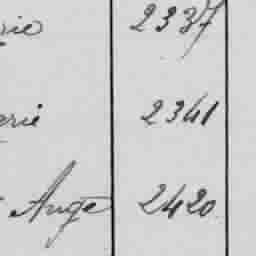 rie 2337
erie 2341
Ange 2420